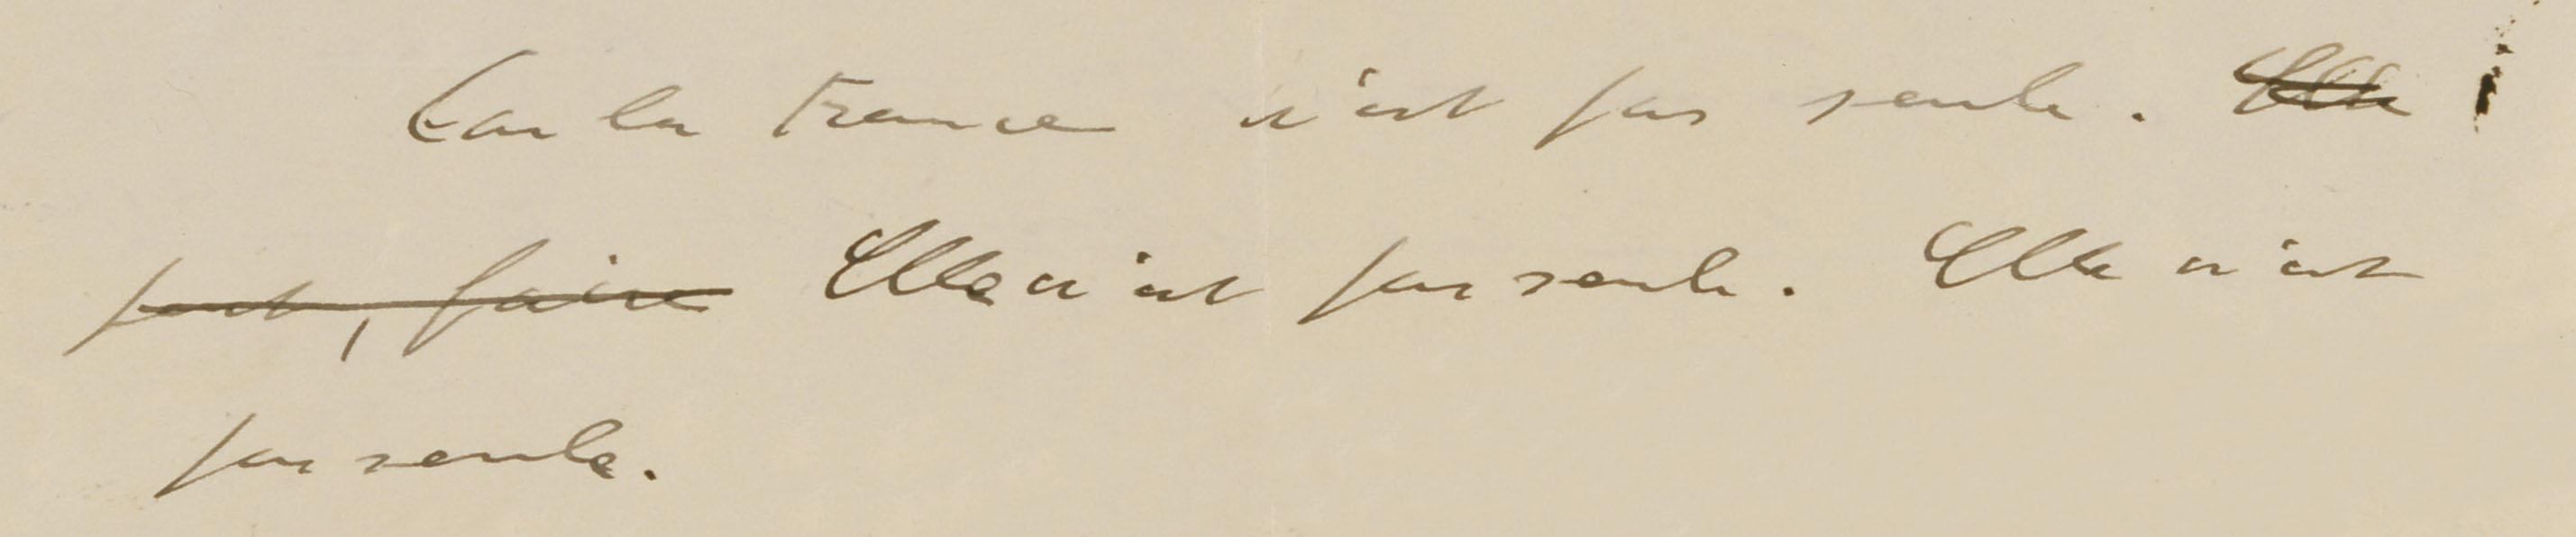 Car la France n'est pas seule. Elle
peut, faire Elle n'est pas seule. Elle n'est
pas seule.